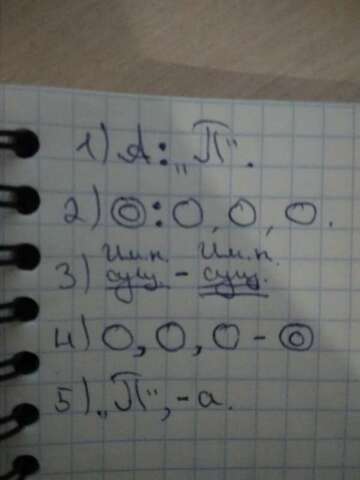 1) А: „П".
2) ⊚: О, О, О.
Им.п. Им.п.
3) сущ. - сущ.
4) О, О, О - ⊚
5) „П", - а.